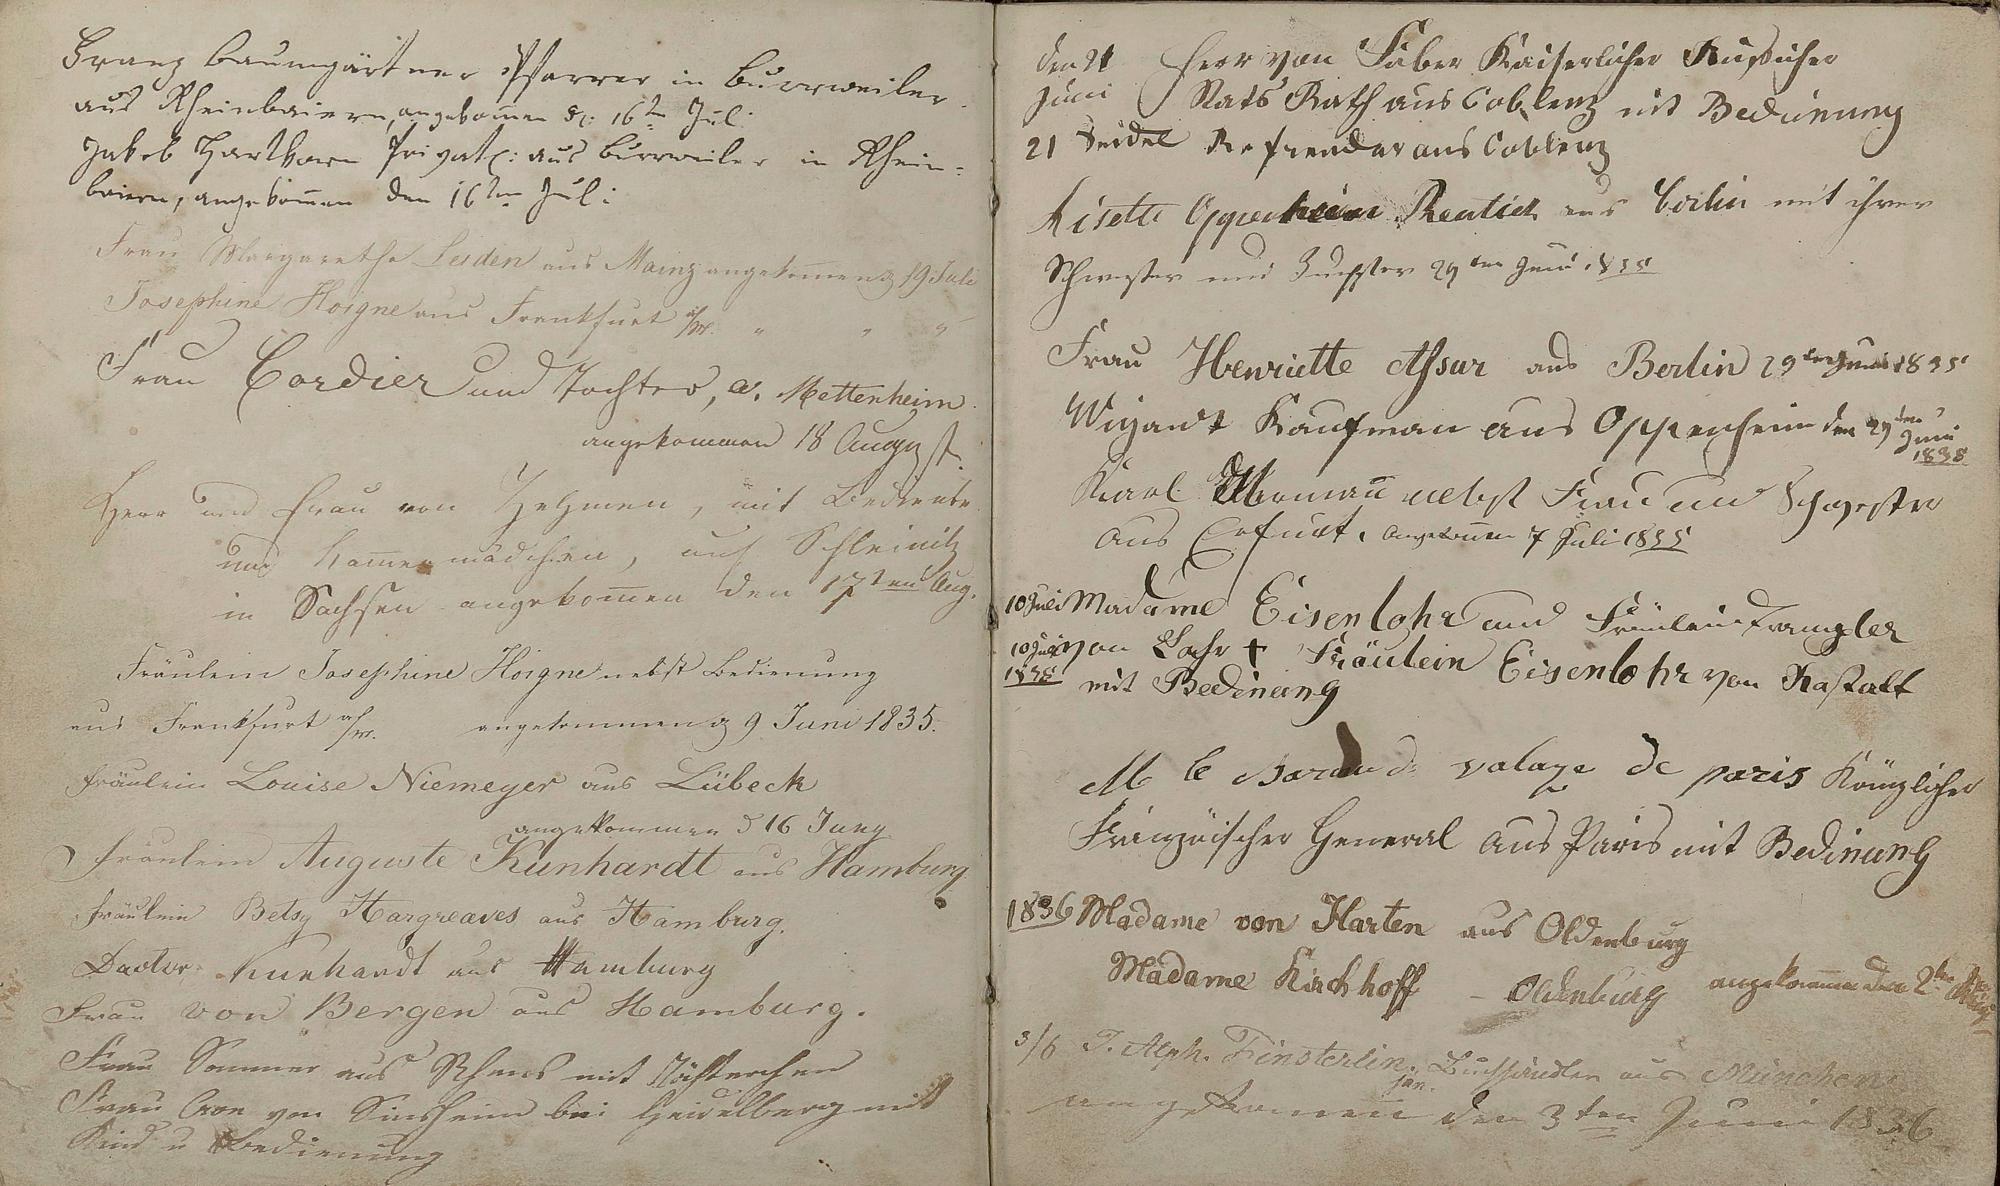 Franz Baumgärtner Pfarrer in Burrweiler
aus Rheinbaiern, angekom̄en d: 16t Jul:
Jakob Hartkorn Privat: aus Burrweiler in Rhein-
baiern, angekom̄en den 16ten Jul:
Frau Margarethe Leiden aus Mainz angekom̄en d 19 Juli
Josephine Hoigne aus Frankfurt a/m. " " "
Frau Cordier und Tochter, a. Mettenheim
angekommen 18 August.
Herr und Frau von Zehmen, mit Bediente
und Kam̄ermädchen, auf Schleinitz
in Sachsen angekom̄en den 17ten Aug.
Fräulein Josephine Hoigne nebst Bedienung
aus Frankfurt a/m. angekommen d 9 Juni 1835.
Fräulein Louise Niemeyer aus Lübeck
angekommen d 16 Juny
Fräulein Auguste Kunhardt aus Hamburg
Fräulein Betsy Hargreaves aus Hamburg.
Doctor Kunhardt aus Hamburg
Frau von Bergen aus Hamburg.
Frau Sommer aus Rhens mit Töchterchen
Frau von Sinsheim bei Heidelberg mit
Kind u Bedienung
den 21 Herr von Faber Kaiserlicher Russischer
Juni Stats Rath aus Coblenz mit Bedinung
21 Seidel Refrendar aus Coblenz
Lisette Oppenheim Rentier aus Berlin mit ihrer
Schwester und 29ten Juni 1835
Frau Henriette Assur aus Berlin 29ten Juni 1835
Wigandt Kaufman aus Oppenheim den 29ten Juni
1835
Karl nebst Frau und Schwester
aus Erfurt. angekom̄en 7 Juli 1835
10 Juli Madame Eisenlohr und Fräulein Trampler
10 Juli von Lahr + Fräulein Eisenlohr von Rastatt
1835 mit Bedinung
M le Baron de valaze de paris Königlicher
Französischer General aus Paris mit Bedinung
1836 Madame von Harten aus Oldenburg
Madame Kirchhoff – Oldenburg angekom̄en den 2ten
3/6 J. Alph. Finsterlin, Buchhändler aus München
jun.
angekommen den 3ten Juni 1836